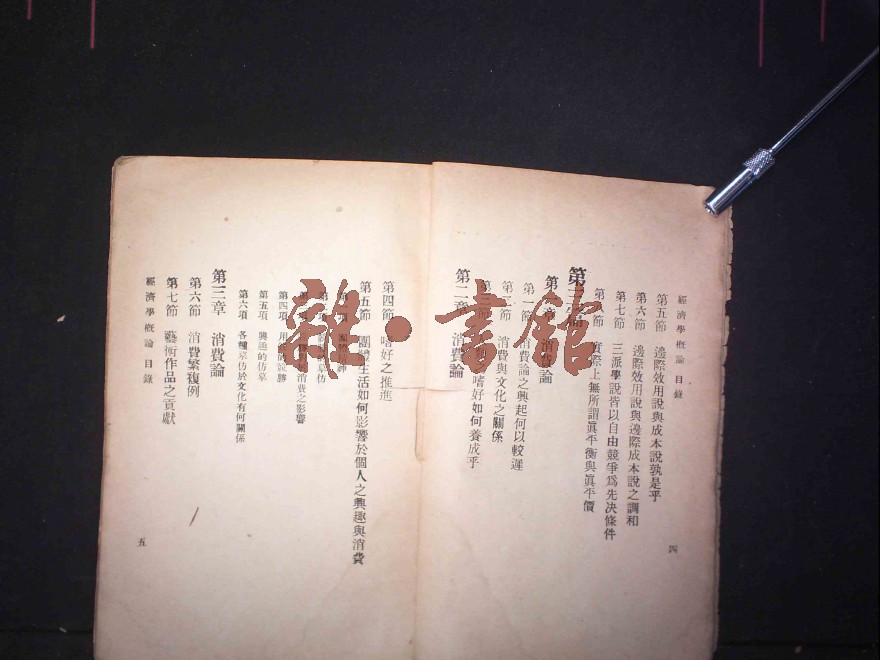 經濟學概論 目錄
第五節 邊際效用說與成本說孰是乎
第六節 邊際效用說與邊際成本說之調和
第七節 三派學說皆以自由競爭爲先決條件
第八節 實際上無所謂眞平衡與眞平價
第三編
第一章 消費論
第一節 消費論之興起何以較遲
第二節 消費與文化之關係
第三節 嗜好如何養成乎
第二章 消費論
四
第四節 嗜好之推進
第五節 團體生活如何影響於個人之興趣與消費
消費之影響
第四項 用
競勝
第五項 興趣的仿摹
第六項 各種摹仿於文化有何關係
第三章 消費論
第六節 消費繁複例
第七節 藝術作品之貢獻
經濟學概論 目錄
五
雜·書館